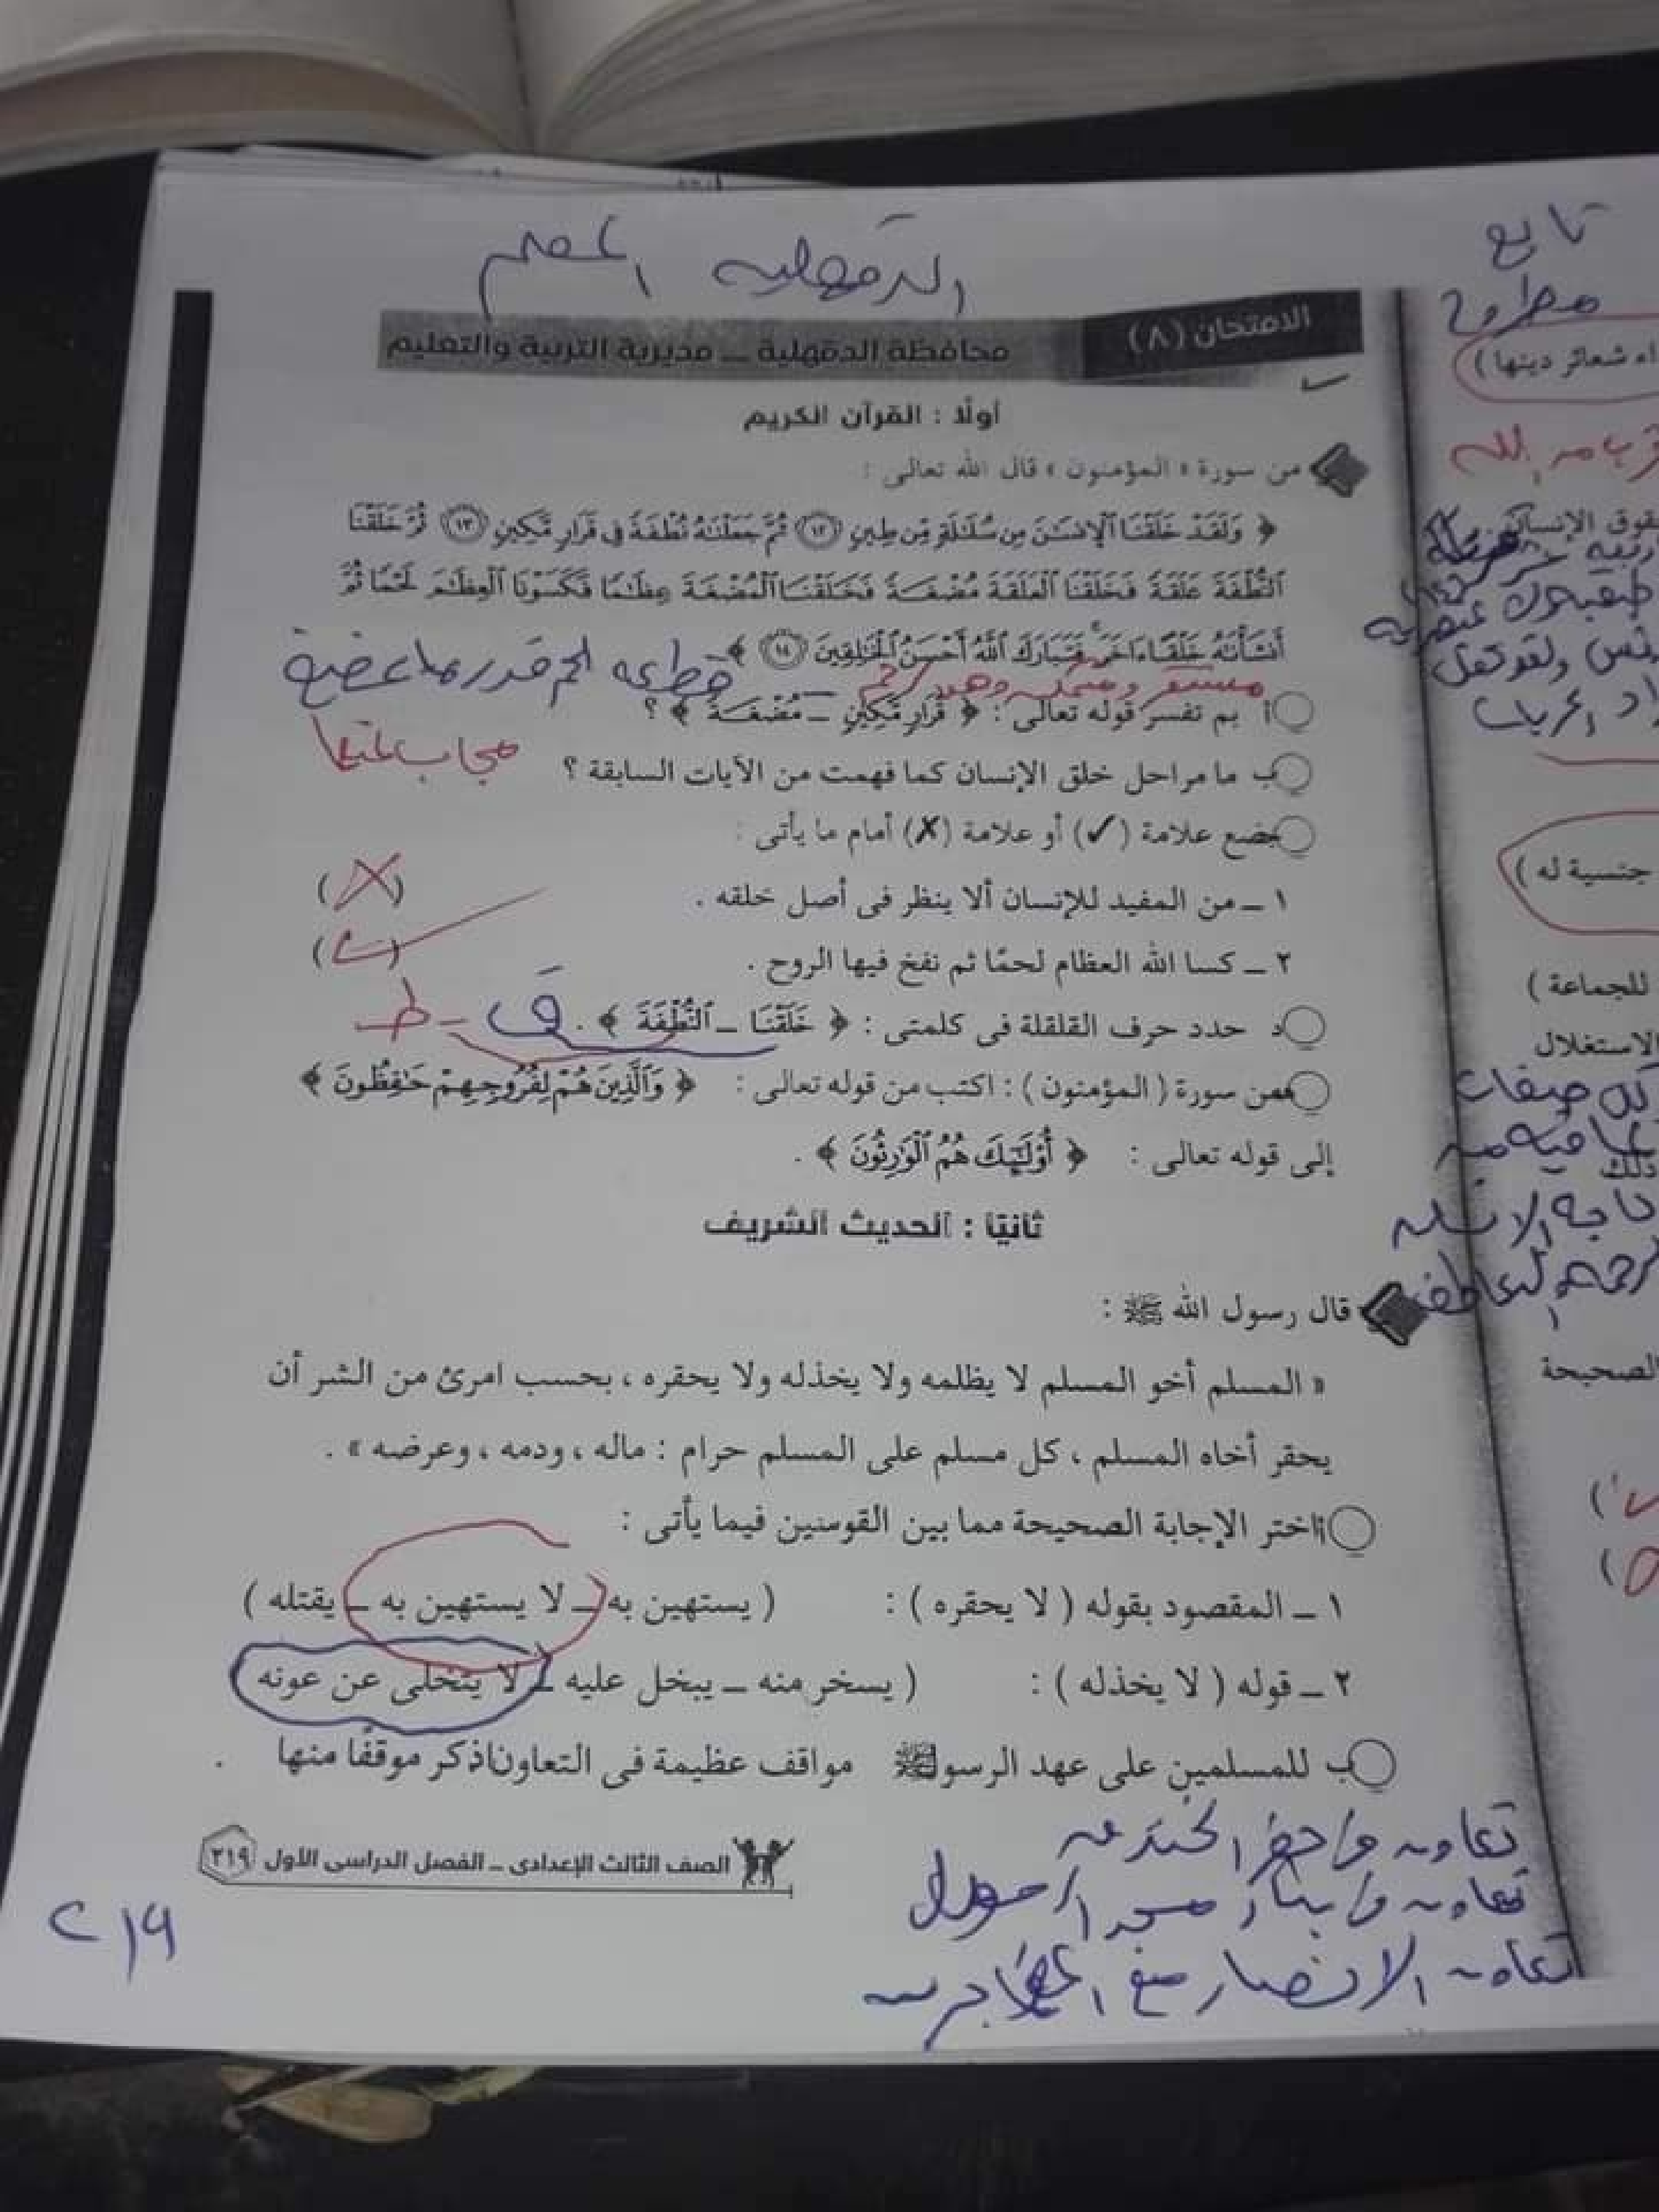 الدقهلية المعلم
تابع
مطروح
الامتحان (٨)
محافظة الدقهلية ــ مديرية التربية والتعليم
اء شعائر دينها )
أولًا : القرآن الكريم
من سورة « المؤمنون » قال الله تعالى :
﴿ وَلَقَدْ خَلَقْنَا ٱلْإِنسَٰنَ مِن سُلَٰلَةٍ مِّن طِينٍ ﴿١٢﴾ ثُمَّ جَعَلْنَٰهُ نُطْفَةً فِى قَرَارٍ مَّكِينٍ ﴿١٣﴾ ثُمَّ خَلَقْنَا
ٱلنُّطْفَةَ عَلَقَةً فَخَلَقْنَا ٱلْعَلَقَةَ مُضْغَةً فَخَلَقْنَا ٱلْمُضْغَةَ عِظَٰمًا فَكَسَوْنَا ٱلْعِظَٰمَ لَحْمًا ثُمَّ
أَنشَأْنَٰهُ خَلْقًا ءَاخَرَ ۚ فَتَبَارَكَ ٱللَّهُ أَحْسَنُ ٱلْخَٰلِقِينَ ﴿١٤﴾ ﴾
قطعة لحم قدر ما يمضغ
أ بم تفسر قوله تعالى : ﴿ قَرَارٍ مَّكِينٍ ــ مُضْغَةً ﴾ ؟
مجاب عنها
ب ما مراحل خلق الإنسان كما فهمت من الآيات السابقة ؟
ج ضع علامة (✓) أو علامة (✗) أمام ما يأتى :
١ ــ من المفيد للإنسان ألا ينظر فى أصل خلقه . (X)
٢ ــ كسا الله العظام لحمًا ثم نفخ فيها الروح . (✓)
د حدد حرف القلقلة فى كلمتى : ﴿ خَلَقْنَا ــ ٱلنُّطْفَةَ ﴾ . ق - ط
هـ من سورة ( المؤمنون ) : اكتب من قوله تعالى : ﴿ وَٱلَّذِينَ هُمْ لِفُرُوجِهِمْ حَٰفِظُونَ ﴾
إلى قوله تعالى : ﴿ أُو۟لَٰٓئِكَ هُمُ ٱلْوَٰرِثُونَ ﴾ .
ثانيًا : الحديث الشريف
قال رسول الله ﷺ :
« المسلم أخو المسلم لا يظلمه ولا يخذله ولا يحقره ، بحسب امرئ من الشر أن
يحقر أخاه المسلم ، كل مسلم على المسلم حرام : ماله ، ودمه ، وعرضه » .
أ اختر الإجابة الصحيحة مما بين القوسين فيما يأتى :
١ ــ المقصود بقوله ( لا يحقره ) : ( يستهين به ــ لا يستهين به ــ يقتله )
٢ ــ قوله ( لا يخذله ) : ( يسخر منه ــ يبخل عليه ــ لا يتخلى عن عونه
ب للمسلمين على عهد الرسول ﷺ مواقف عظيمة فى التعاون اذكر موقفًا منها .
تعاون في حفر الخندق
تعاون في بناء مسجد الرسول
تعاون الانصار مع المهاجرين
الصف الثالث الإعدادى ــ الفصل الدراسى الأول ٢١٩
٢١٩
جنسية له )
للجماعة )
الاستغلال
ذلك
الصحيحة